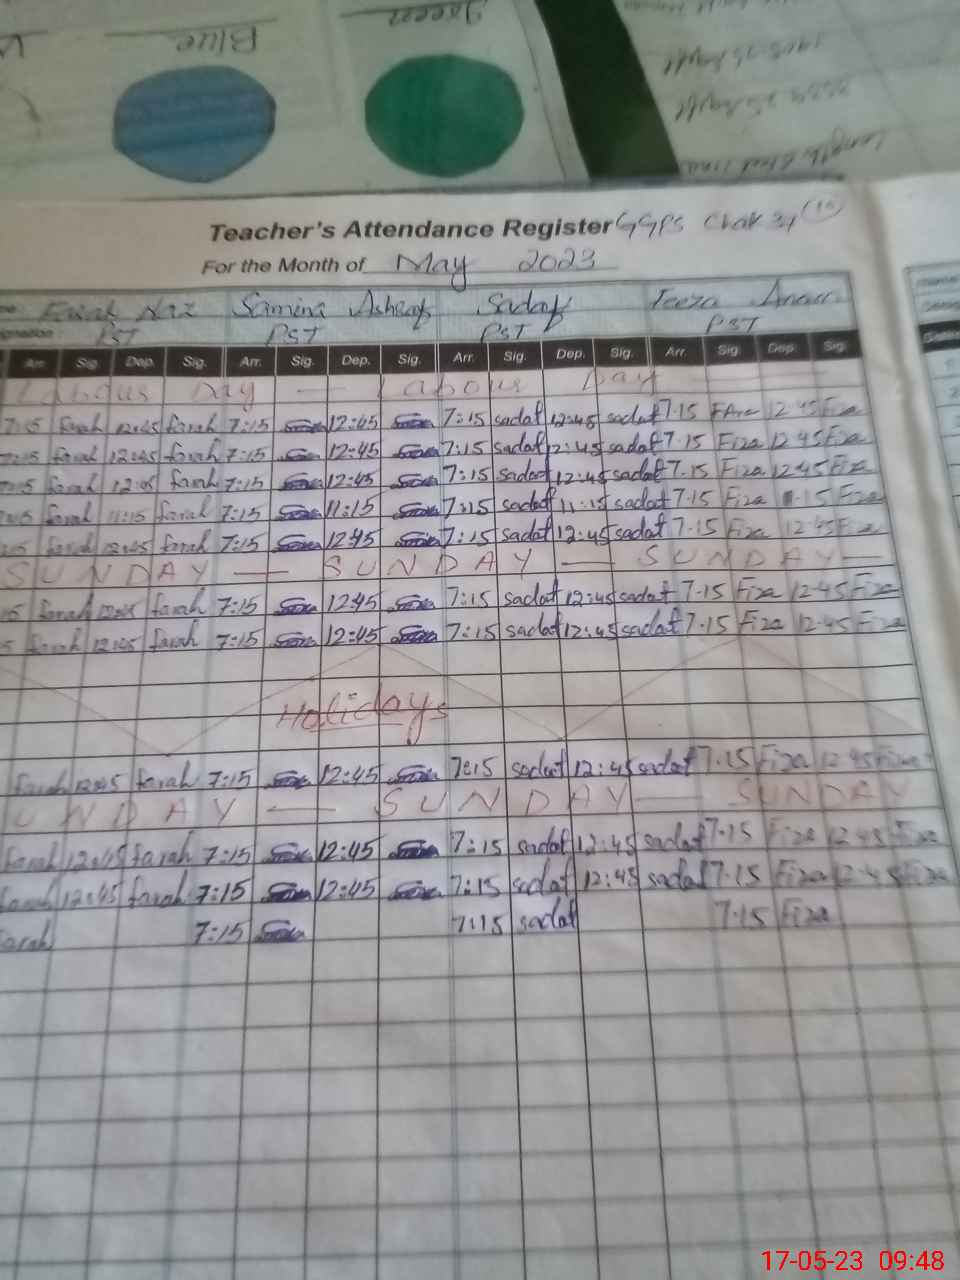 Green
Blue
Teacher's Attendance Register GGPS Chak 34
For the Month of May 2023
Farah Naz Samina Ashraf Sadaf
PST PST PST PST
Arr. Sig. Dep. Sig. Arr. Sig. Dep. Sig. Arr. Sig. Dep. Sig. Arr. Sig. Dep. Sig.
Labour Day — Labour Day —
7:15 farah 12:45 farah 7:15 12:45 7:15 sadaf 12:45 sadaf 7.15 12.45 Fiza
7:15 farah 12:45 farah 7:15 12:45 7:15 sadaf 12:45 sadaf 7.15 Fiza 12.45 Fiza
7:15 farah 12:45 farah 7:15 12:45 7:15 sadaf 12:45 sadaf 7.15 Fiza 12.45 Fiza
7:15 farah 11:15 farah 7:15 11:15 7:15 sadaf 11:15 sadaf 7.15 Fiza 11.15 Fiza
farah 12:45 farah 7:15 12:45 7:15 sadaf 12:45 sadaf 7.15 Fiza 12.45 Fiza
SUNDAY — SUNDAY — SUNDAY —
farah 12:45 farah 7:15 12:45 7:15 sadaf 12:45 sadaf 7.15 Fiza 12.45 Fiza
farah 12:45 farah 7:15 12:45 7:15 sadaf 12:45 sadaf 7.15 Fiza 12.45 Fiza
Holidays
farah 12:45 farah 7:15 12:45 7:15 sadaf 12:45 sadaf 7.15 Fiza 12.45 Fiza
UNDAY — SUNDAY — SUNDAY
farah 12:45 farah 7:15 12:45 7:15 sadaf 12:45 sadaf 7.15 Fiza 12.45 Fiza
farah 12:45 farah 7:15 12:45 7:15 sadaf 12:45 sadaf 7.15 Fiza 12.45 Fiza
farah 7:15 7:15 sadaf 7.15 Fiza
17-05-23 09:48